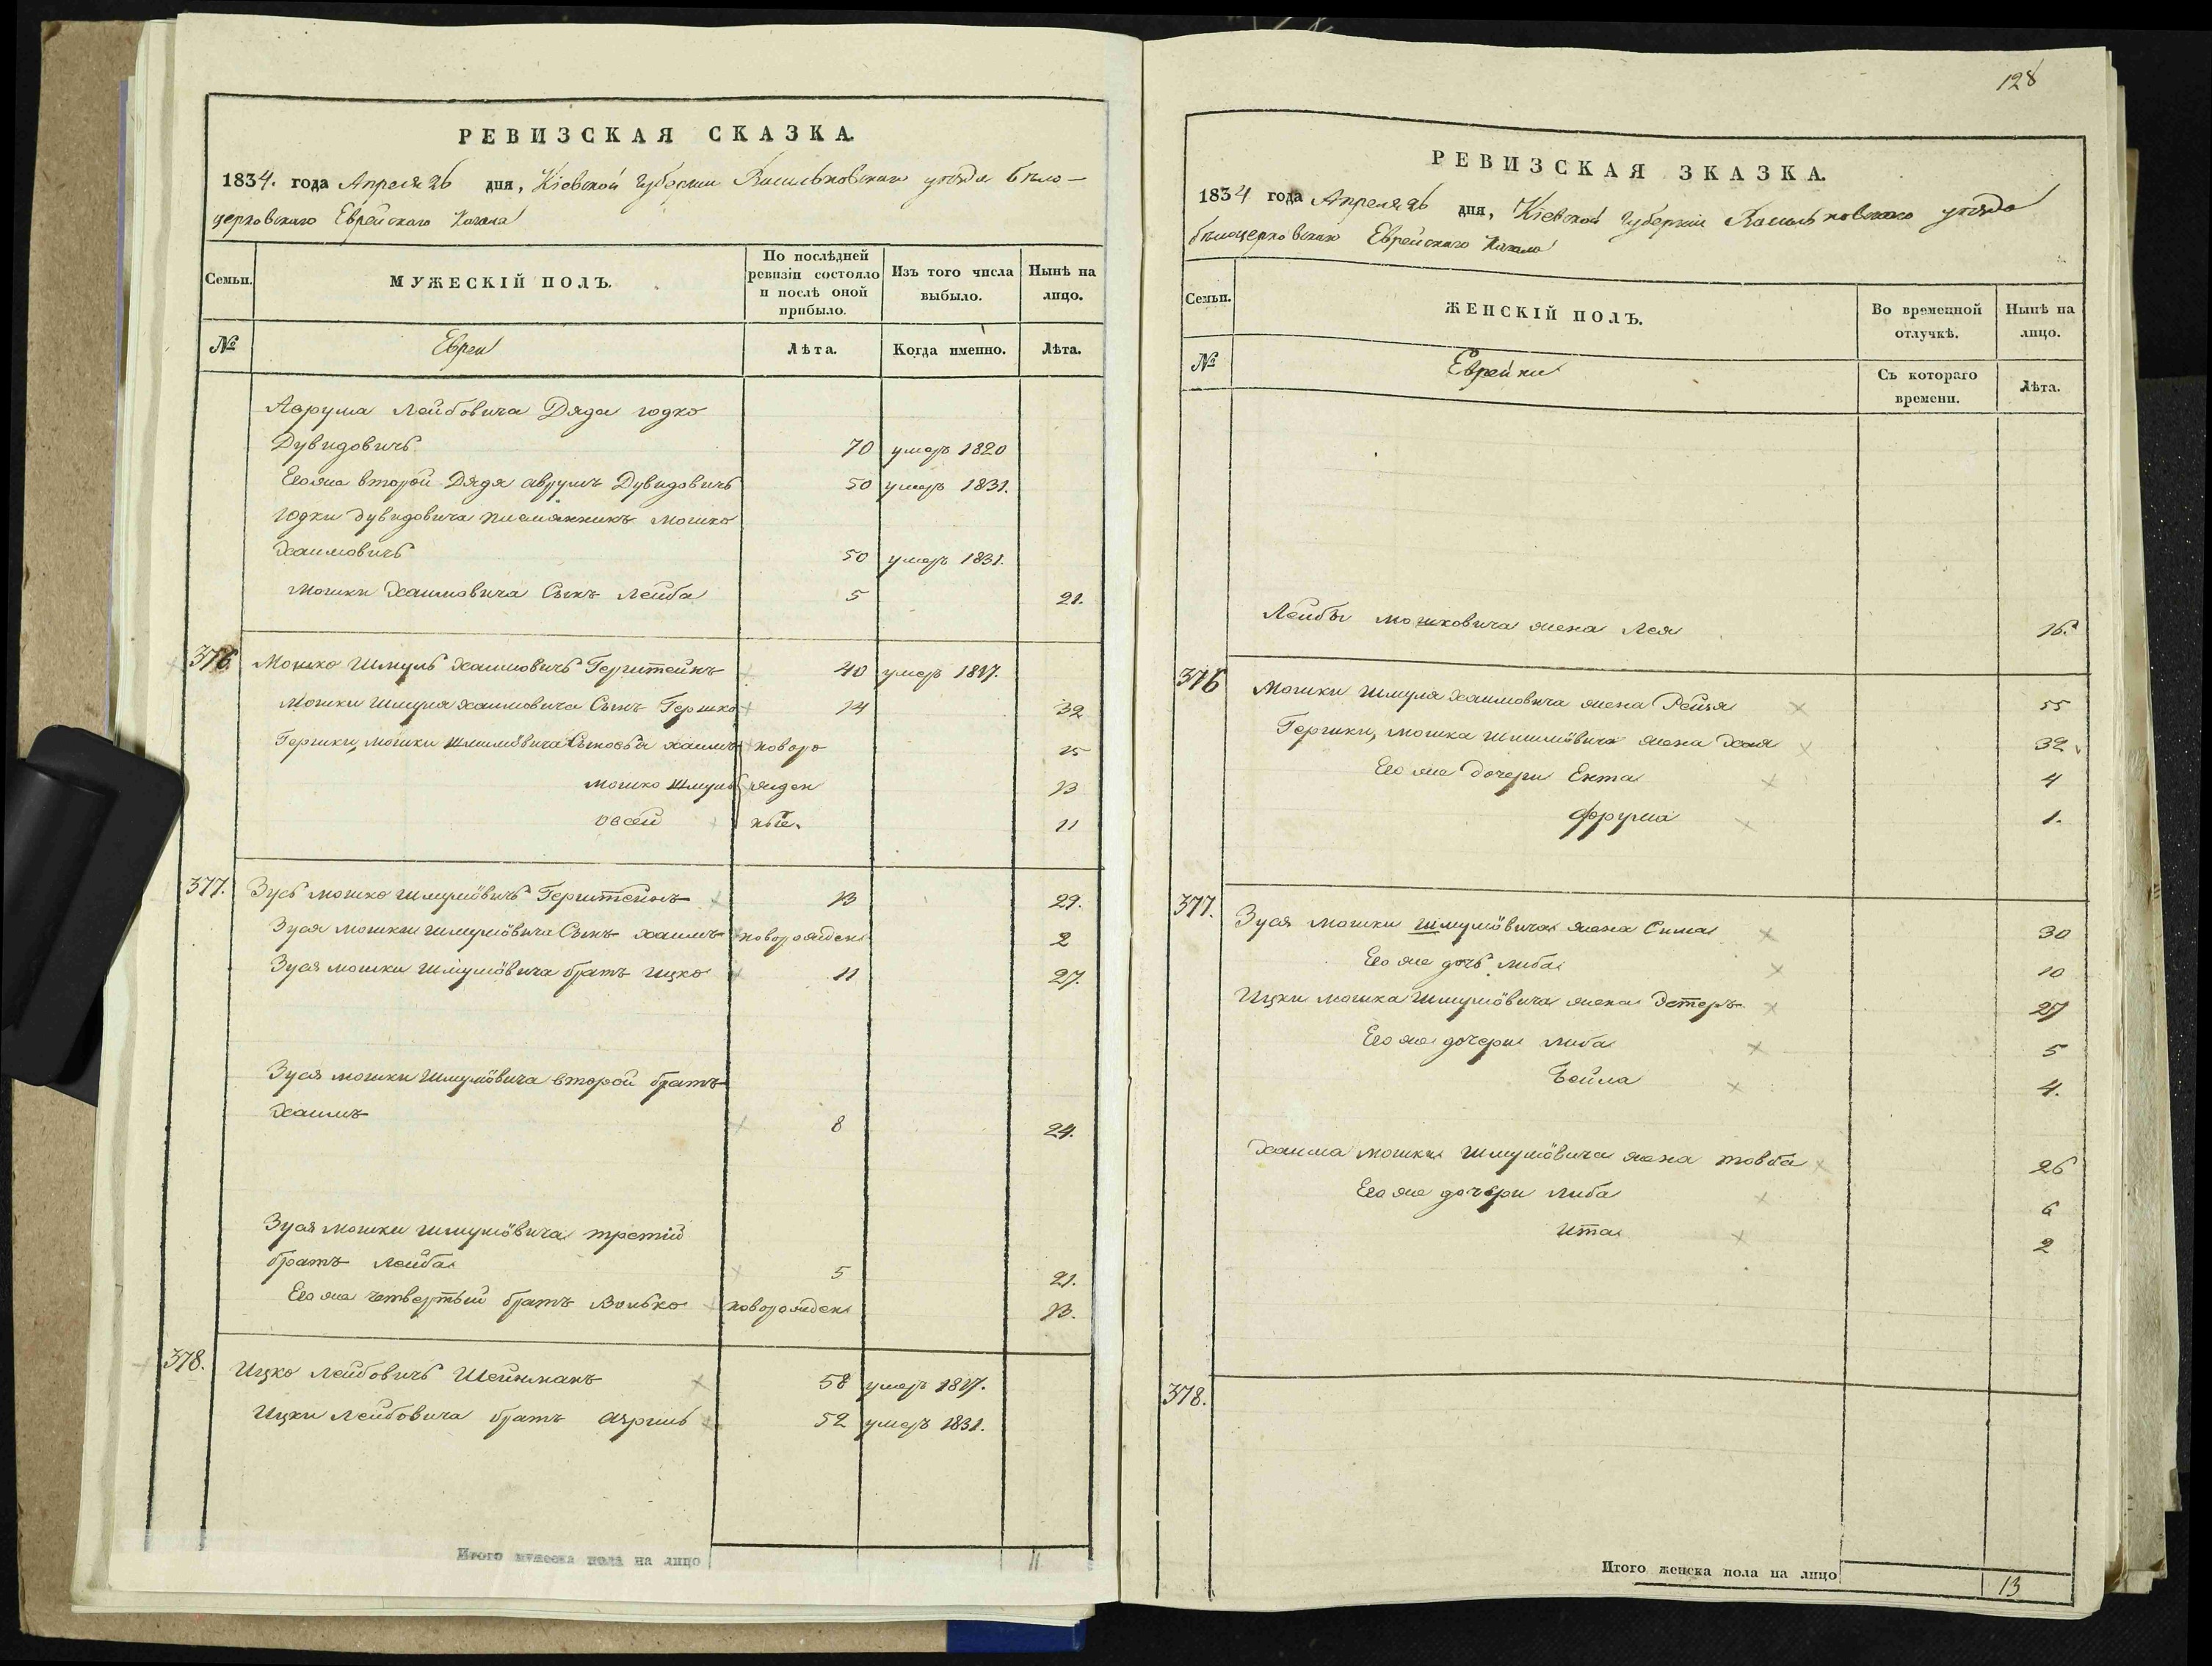 РЕВИЗСКАЯ СКАЗКА.
1834. года Апреля 26 дня, Кіевской Губерніи Васильковскаго уѣзда бѣло-
церковскаго Еврейскаго Кагала
Семьи. МУЖЕСКІЙ ПОЛЪ. По послѣдней ревизіи состояло и послѣ оной прибыло. Изъ того числа выбыло. Нынѣ на лицо.
№ Евреи Лѣта. Когда именно. Лѣта.
Аврума Лейбовича Дядя юдко
Дувидовичъ 70 умеръ 1820
Его же второй Дядя аврумъ Дувидовичъ 50 умеръ 1831.
юдки дувидовича племянникъ мошко
Хаимовичъ 50 умеръ 1831.
мошки Хаимовича Сынъ Лейба 5 21.
376 Мошко Шмуль Хаимовичъ Герштейнъ 40 умеръ 1817.
Мошки Шмуля хаимовича Сынъ Гершко 14 32
Гершки, мошки Шмулёвича Сыновья хаимъ новоро 15
мошко Шмуль жден 13
овсей ные. 11
377. Зусь мошко шмулёвичъ Герштейнъ 13 29.
Зуся мошки шмулёвича Сынъ хаимъ новорожден 2
Зуся мошки шмулёвича братъ ицко 11 27.
Зуся мошки Шмулёвича второй братъ
Хаимъ 8 24.
Зуся мошки шмулёвича третій
братъ лейба 5 21.
Его же четвертый братъ Волько новорожден 13.
378. Ицко лейбовичъ Шейнманъ 58 умеръ 1817.
Ицки Лейбовича братъ 52 умеръ 1831.
Итого мужеска пола на лицо 11
128
РЕВИЗСКАЯ ЗКАЗКА.
1834 года Апреля 26 дня, Кіевской Губерніи Васильковскаго уѣзда
бѣлоцерковскаго Еврейскаго Кагала
Семьи. ЖЕНСКІЙ ПОЛЪ. Во временной отлучкѣ. Нынѣ на лицо.
№ Еврейки Съ котораго времени. Лѣта.
Лейбы мошковича жена Лея 16.
376 Мошки шмуля хаимовича жена Рейзя 55
Гершки, мошка шмулёвича жена Хая 32
Его же дочери Ента 4
фрума 1.
377. Зуся мошки шмулёвича жена Сима 30
Его же дочь либа 10
Ицки мошка шмулёвича жена Эстеръ 27
Его же дочери либа 5
Бейла 4.
Хаима мошки шмулёвича жена товба 26
Его же дочери либа 6
ита 2
378.
Итого женска пола на лицо 13